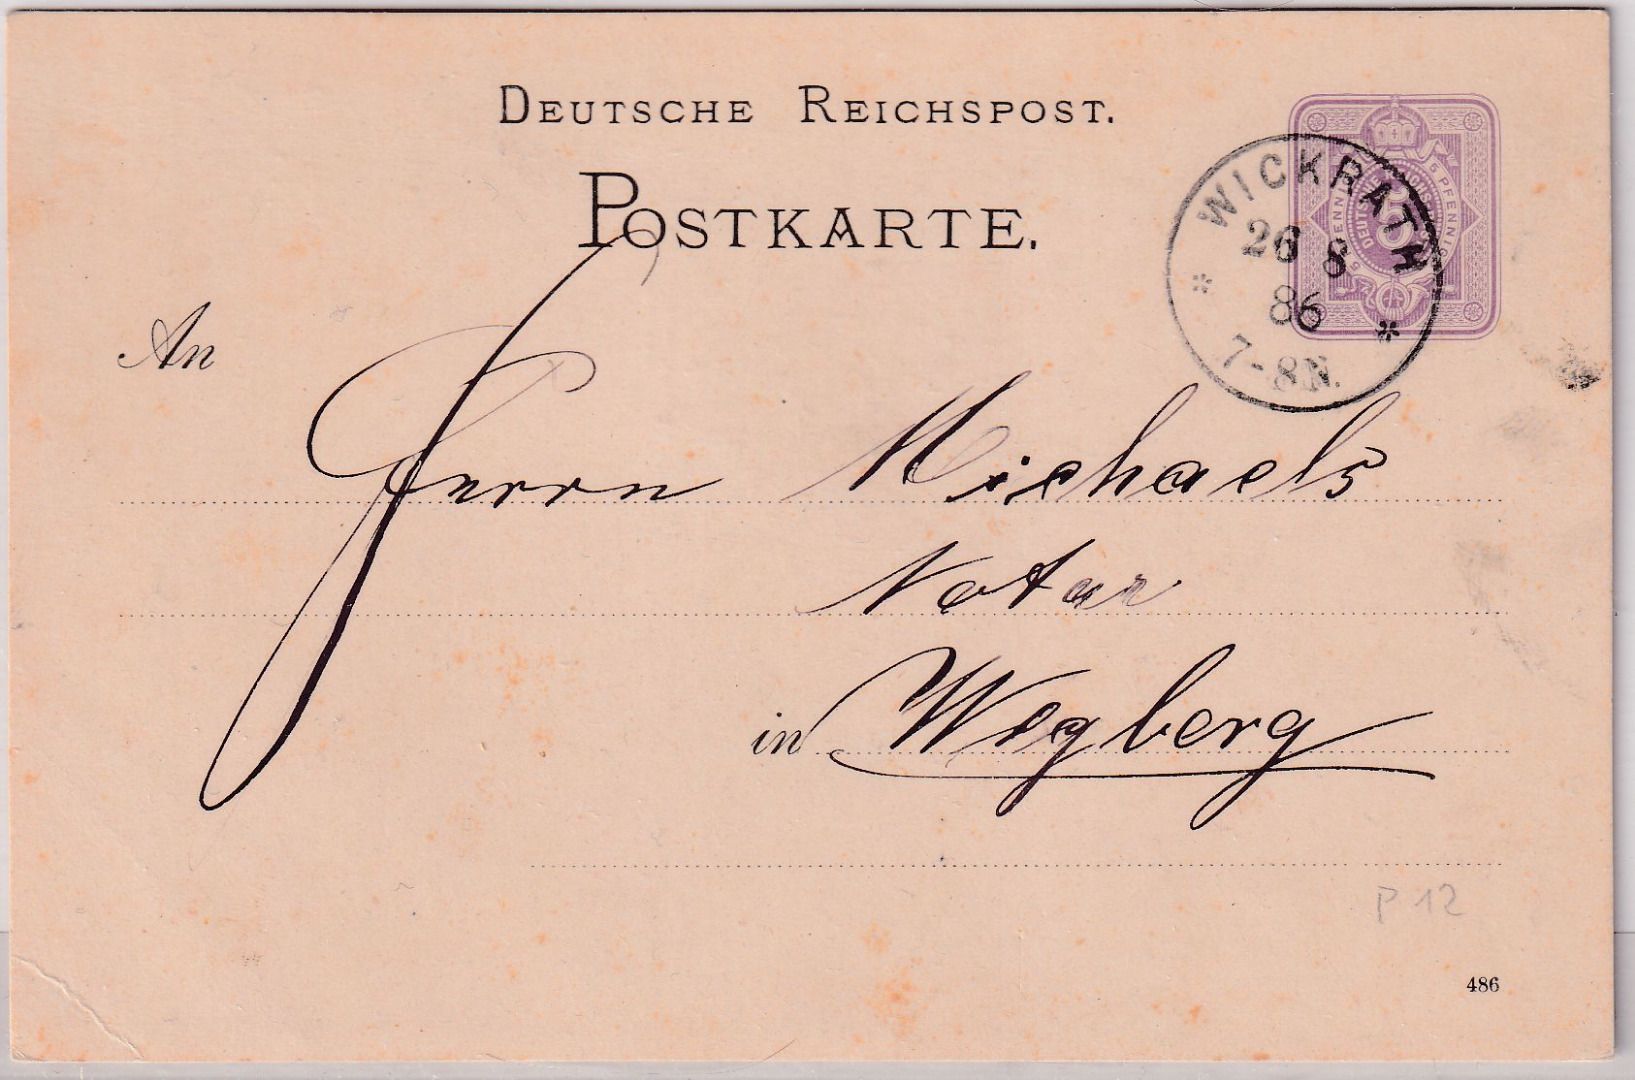 DEUTSCHE REICHSPOST.
POSTKARTE.
5 PFENNIG
DEUTSCHE REICHSPOST
5
WICKRATH
26 8
86
7-8N.
An
Herrn Michaels
Notar
in Wegberg
P 12
486